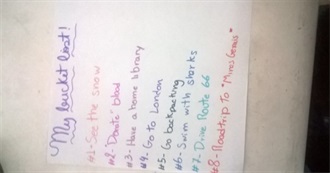 My bucket list!
#1- See the snow
#2- Donate blood
#3- Have a home library
#4- Go to London
#5- Go backpacking
#6- Swim with sharks
#7- Drive Route 66
#8- Roadtrip to "Minas Gerais"